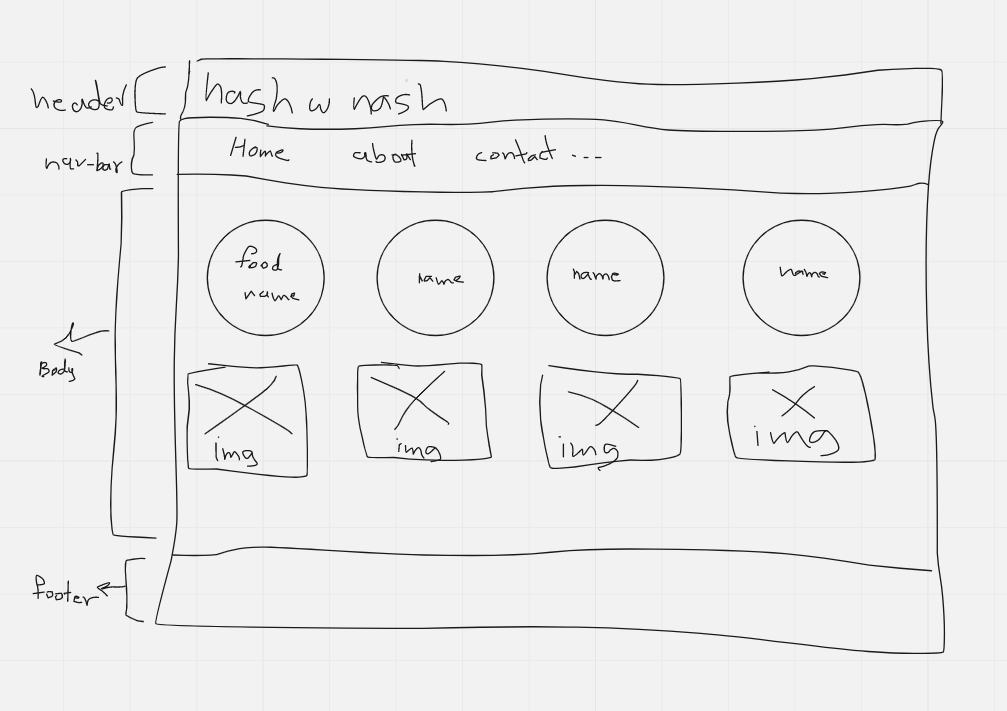 header
hash w nash
nav-bar
Home about contact ...
food
name
name
name
name
Body
img
img
img
img
footer